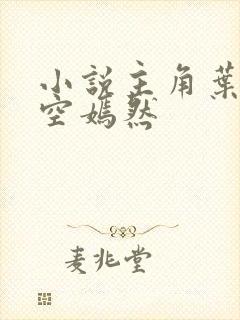 小说主角葉
空嫣然
麦兆堂